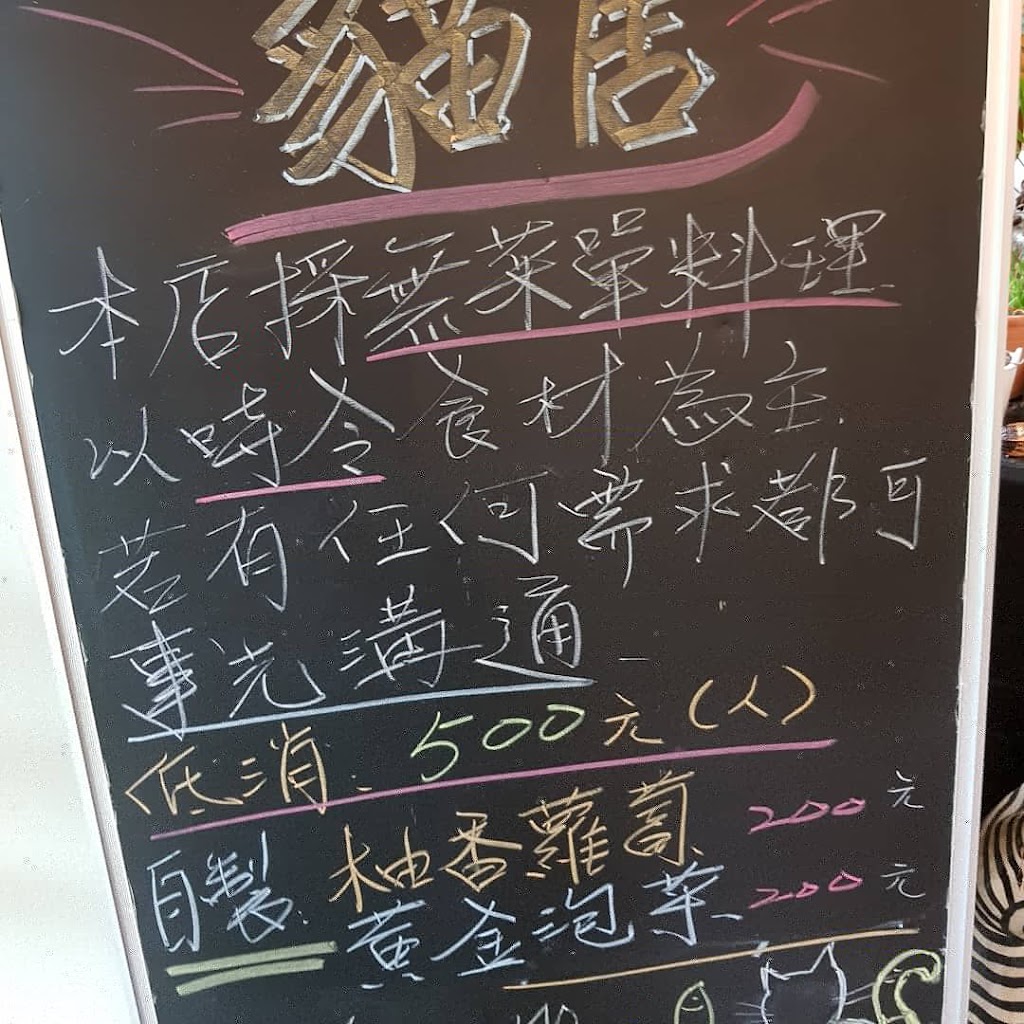 貓店
本店採無菜單料理
以時令食材為主.
若有任何需求都可
事先溝通
低消: 500元(人)
自製: 柚香蘿蔔 200元
黃金泡菜 200元